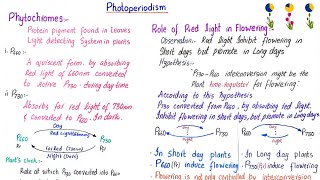 Photoperiodism
Phytochromes:-
Protein pigment found in Leaves
Light detecting System in plants
i. P660:-
A quiescent form. by absorbing
Red light of 660nm converted
to active P730 - during day time
ii. P730
Absorbs far red light of 730nm
& Converted to P660. In dark.
Day
Red Light (660nm)
P660
P730
Pr
Far Red (730nm)
Night (Dark)
Plant's clock:-
Rate at which P730 converted into P660
Role of Red light in Flowering
Observation:- Red light Inhibit flowering in
Short days but promote in Long days
Hypothesis:-
"P730-P660 interconversion might be the
Plant time regulator for flowering"
According to this Hypothesis
P730 converted from P660 by absorbing red light.
Inhibit flowering in short days, but promote in Long days.
Day
P660
P730
Night
Day
P660
P730
Night
• In short day plants
P660 (Pr) induce flowering
• In Long day plants
P730 induce flowering
• Flowering is not only controlled by interconversion